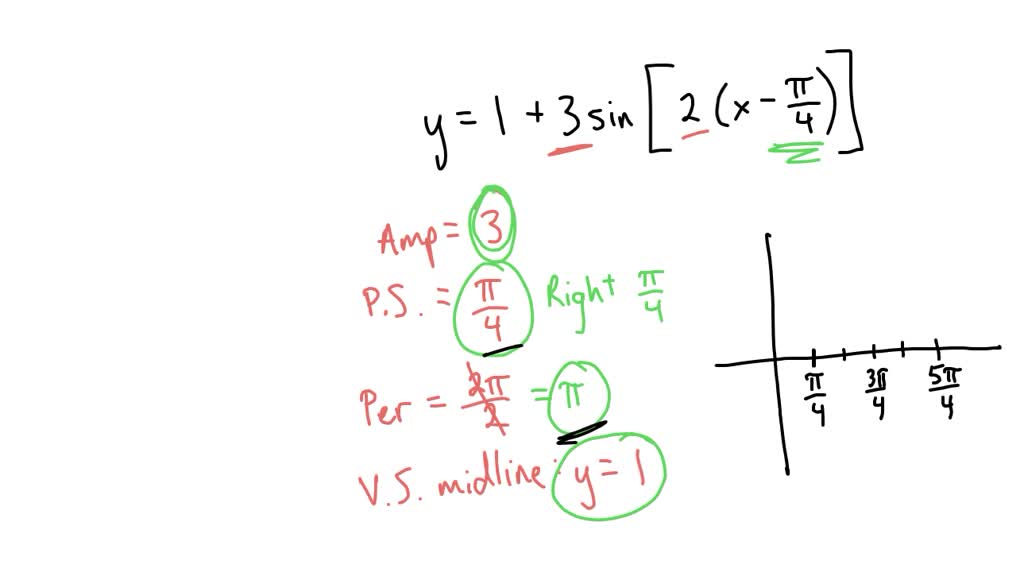 y = 1 + 3 sin [ 2 ( x - π/4 ) ]
Amp = 3
P.S. = π/4 Right π/4
Per = 2π/2 = π
V.S. midline: y = 1
π/4 3π/4 5π/4